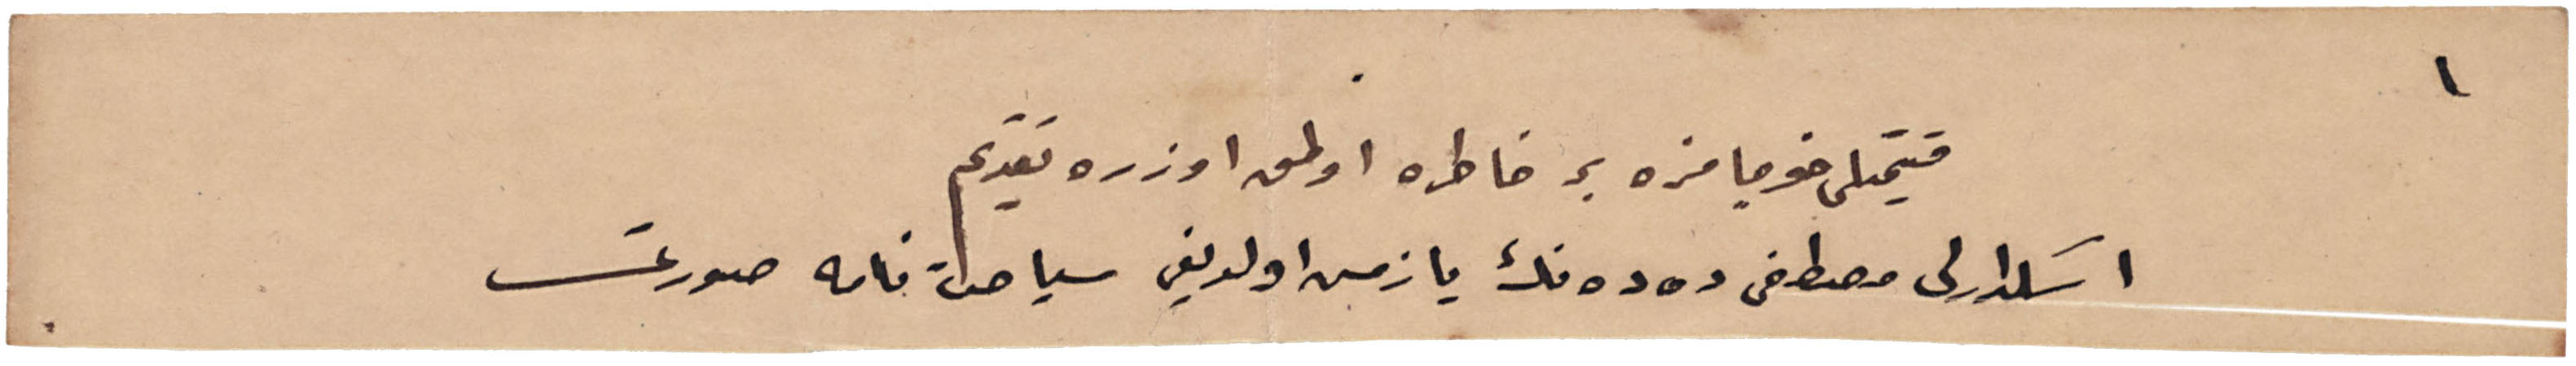 ١
قیمتلی خوجامزه بر خاطره اولمق اوزره تقدیم
اسکدارلی مصطفی دده نك یازمش اولدیغی سیاحت نامه صورتی